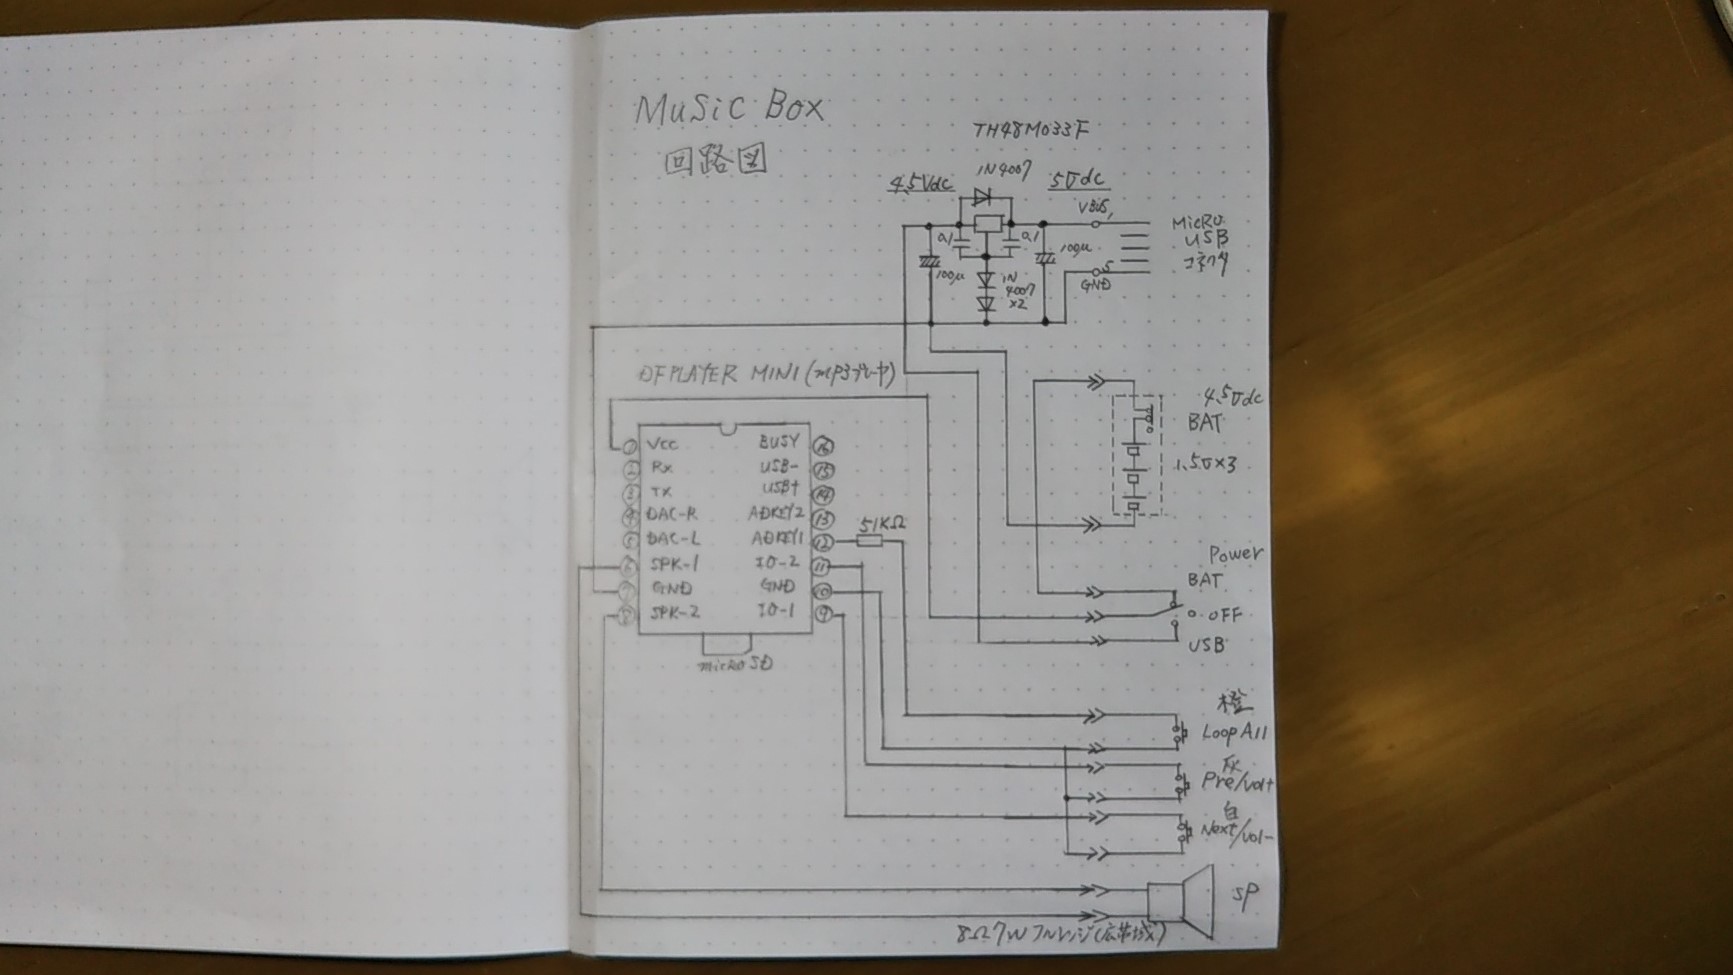 Music Box
回路図
TH48M033F
1N4007
4.5Vdc
5Vdc
VBUS
1
Micro
USB
コネクタ
0.1
0.1
100μ
100μ
1N
4007
x2
5
GND
DFPLAYER MINI (mp3プレーヤ)
① Vcc
BUSY ⑯
② Rx
USB- ⑮
③ TX
USB+ ⑭
④ DAC-R
ADKEY2 ⑬
⑤ DAC-L
ADKEY1 ⑫
51KΩ
⑥ SPK-1
IO-2 ⑪
⑦ GND
GND ⑩
⑧ SPK-2
IO-1 ⑨
micro SD
4.5Vdc
BAT
1.5V×3
Power
BAT
OFF
USB
橙
Loop All
灰
Pre/vol+
白
Next/vol-
SP
8Ω7W フルレンジ(広帯域)